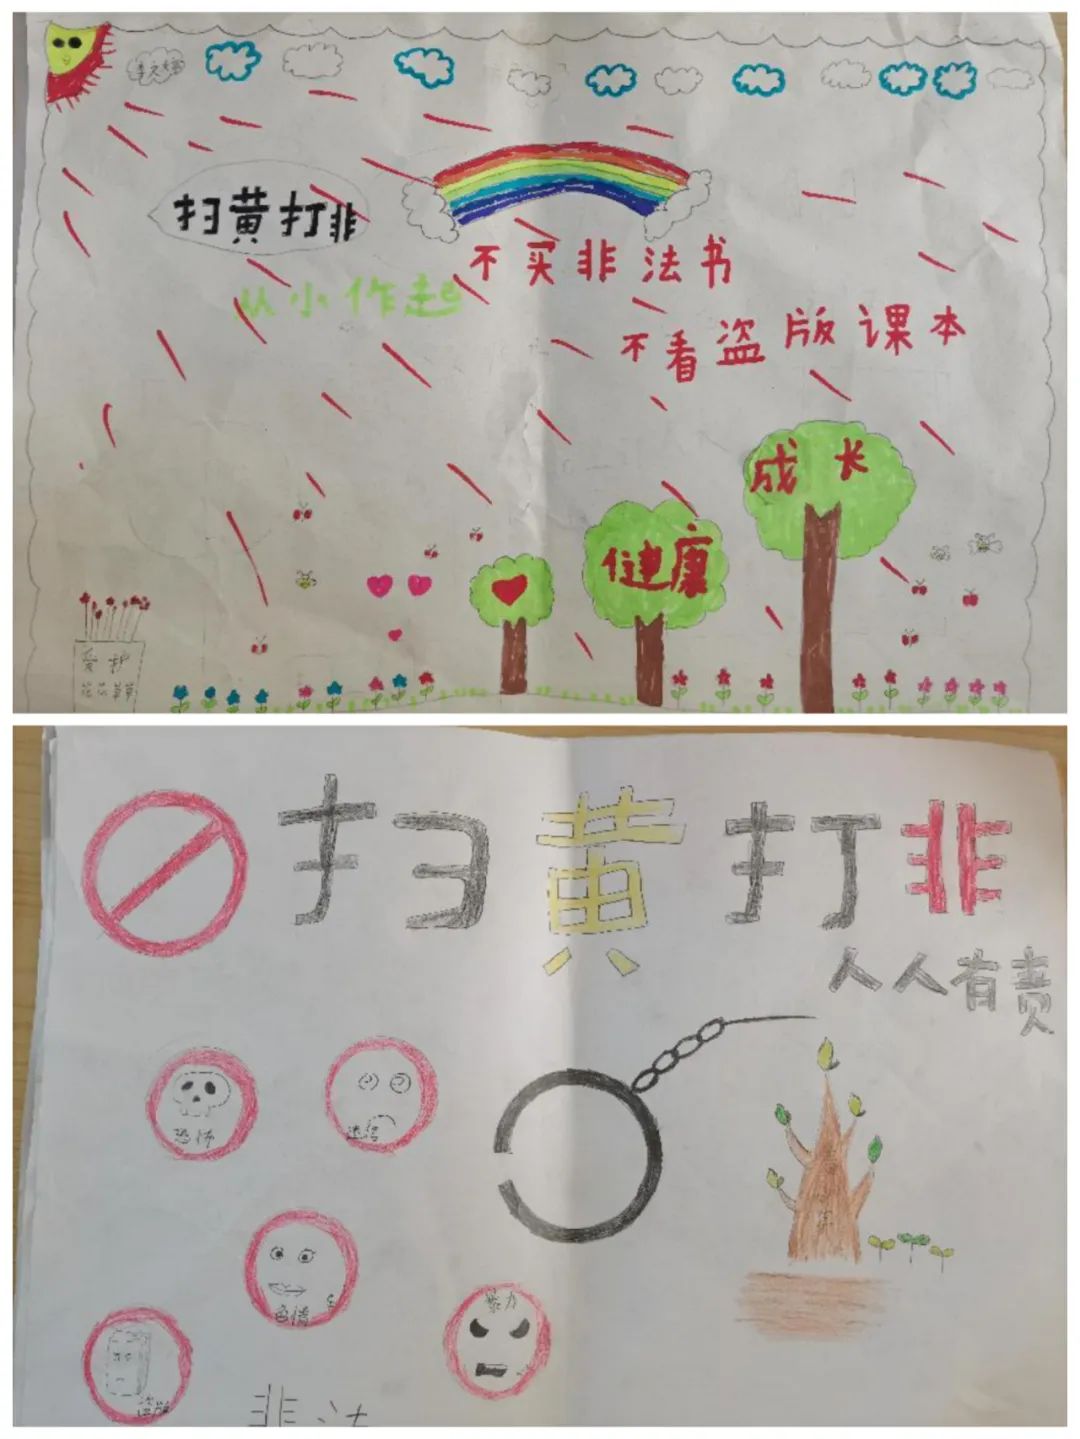 扫黄打非
从小作起
不买非法书
不看盗版课本
成长
健康
爱护
花花草草
扫黄打非
人人有责
恐怖
迷信
色情
暴力
盗版
非法